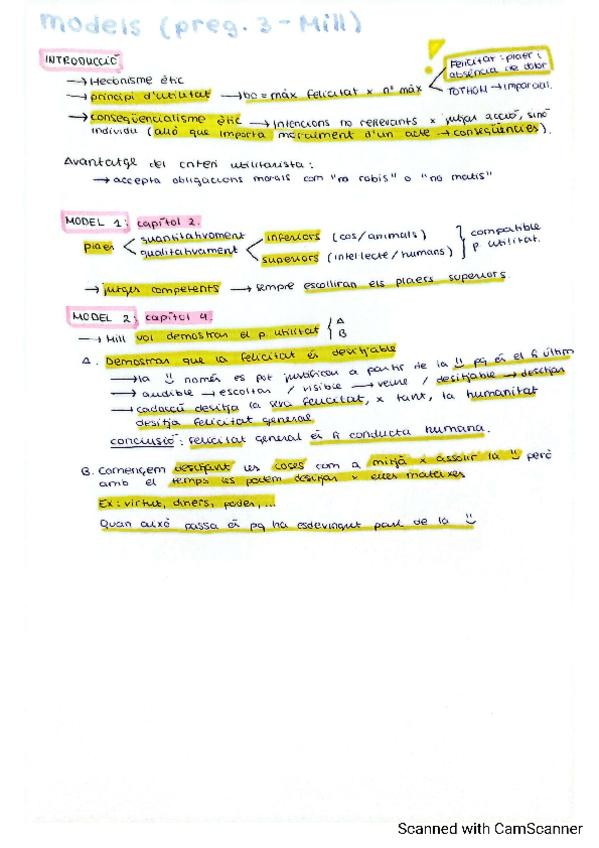 models (preg. 3 - Mill)
INTRODUCCIÓ
→ Hedonisme ètic
→ principi d'utilitat → bo = màx felicitat x nº màx
Felicitat: plaer i absència de dolor
TOTHOM → imparcial
→ conseqüencialisme ètic → intencions no rellevants x jutjar acció, sinó
individu (allò que importa moralment d'un acte → conseqüències).
Avantatge del criteri utilitarista:
→ accepta obligacions morals com "no robis" o "no matis"
MODEL 1: capítol 2.
plaer < quantitativament
qualitativament < inferiors (cos/animals)
superiors (intel·lecte/humans) } compatible p. utilitat.
→ jutges competents → sempre escolliran els plaers superiors.
MODEL 2: capítol 4.
→ Mill vol demostrar el p. utilitat { A
B
A. Demostrar que la felicitat és desitjable
→ la :) només es pot justificar a partir de la :) pq és el fi últim
→ audible → escoltar / visible → veure / desitjable → desitjar
→ cadascú desitja la seva felicitat, x tant, la humanitat
desitja felicitat general
conclusió: felicitat general és fi conducta humana.
B. Comencem desitjant les coses com a mitjà x assolir la :) però
amb el temps les podem desitjar x elles mateixes
Ex: virtut, diners, poder, ...
Quan això passa és pq ha esdevingut part de la :)
Scanned with CamScanner